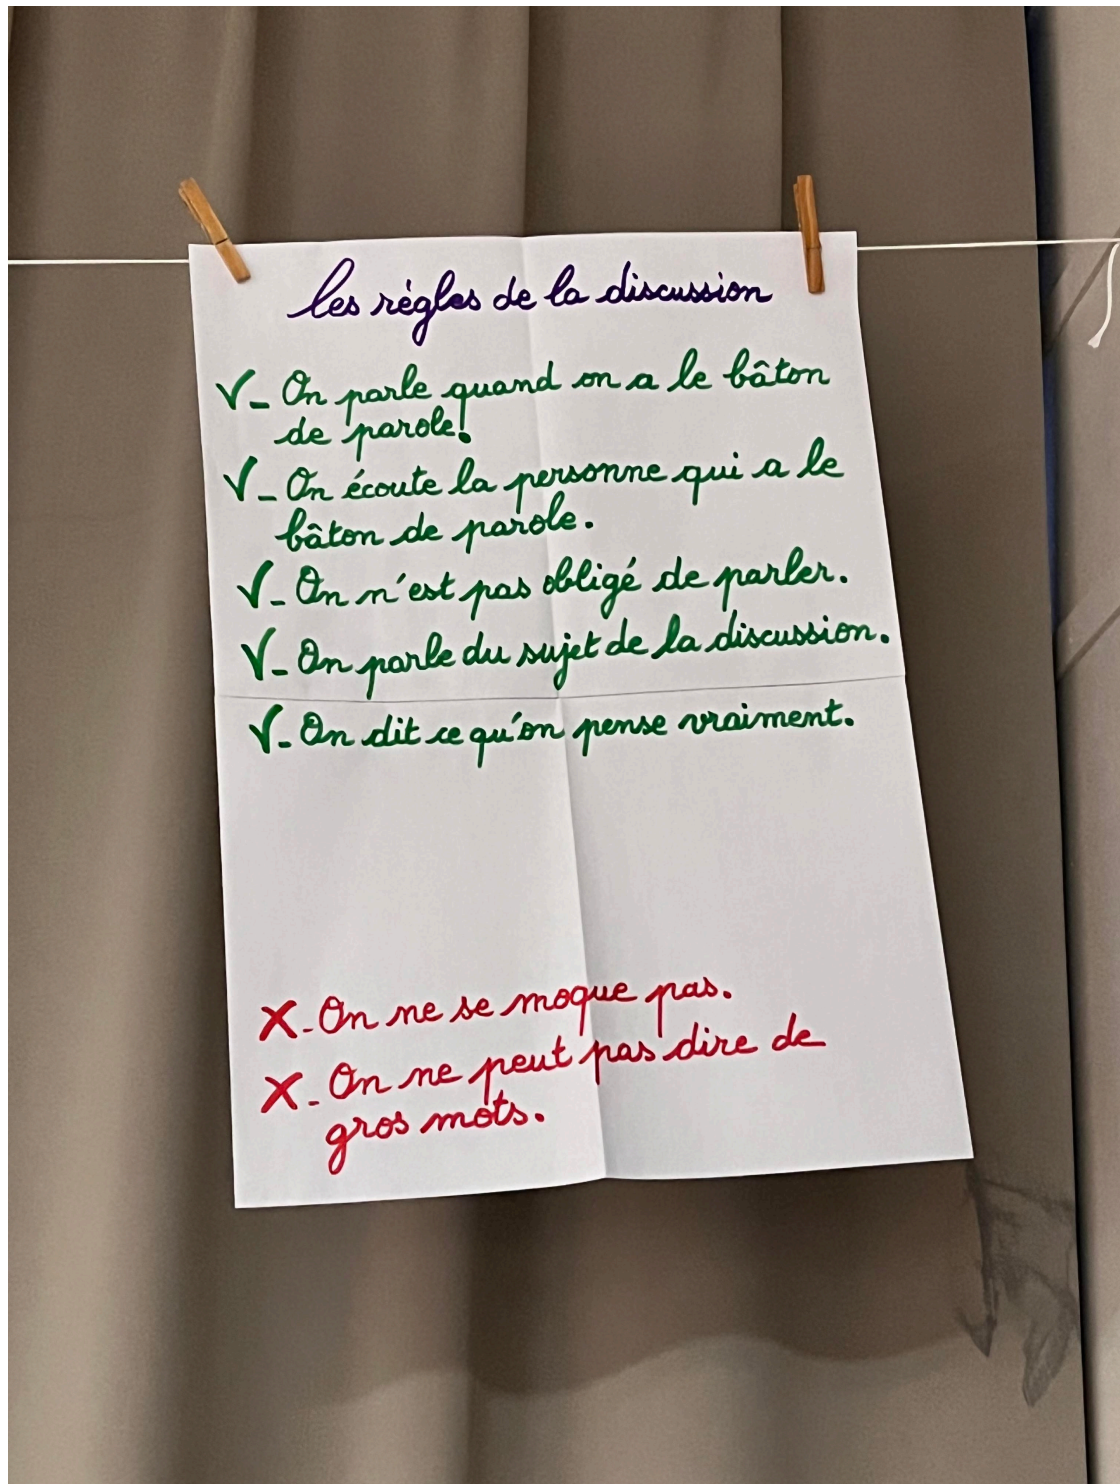 les règles de la discussion
V- On parle quand on a le bâton
de parole!
V- On écoute la personne qui a le
bâton de parole.
V- On n'est pas obligé de parler.
V- On parle du sujet de la discussion.
V- On dit ce qu'on pense vraiment.
X- On ne se moque pas.
X- On ne peut pas dire de
gros mots.